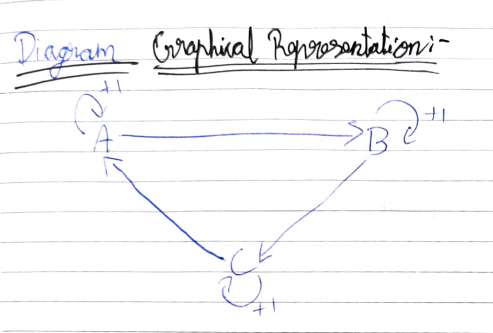 Diagram Graphical Representation:-
+1
A
B
+1
C
+1